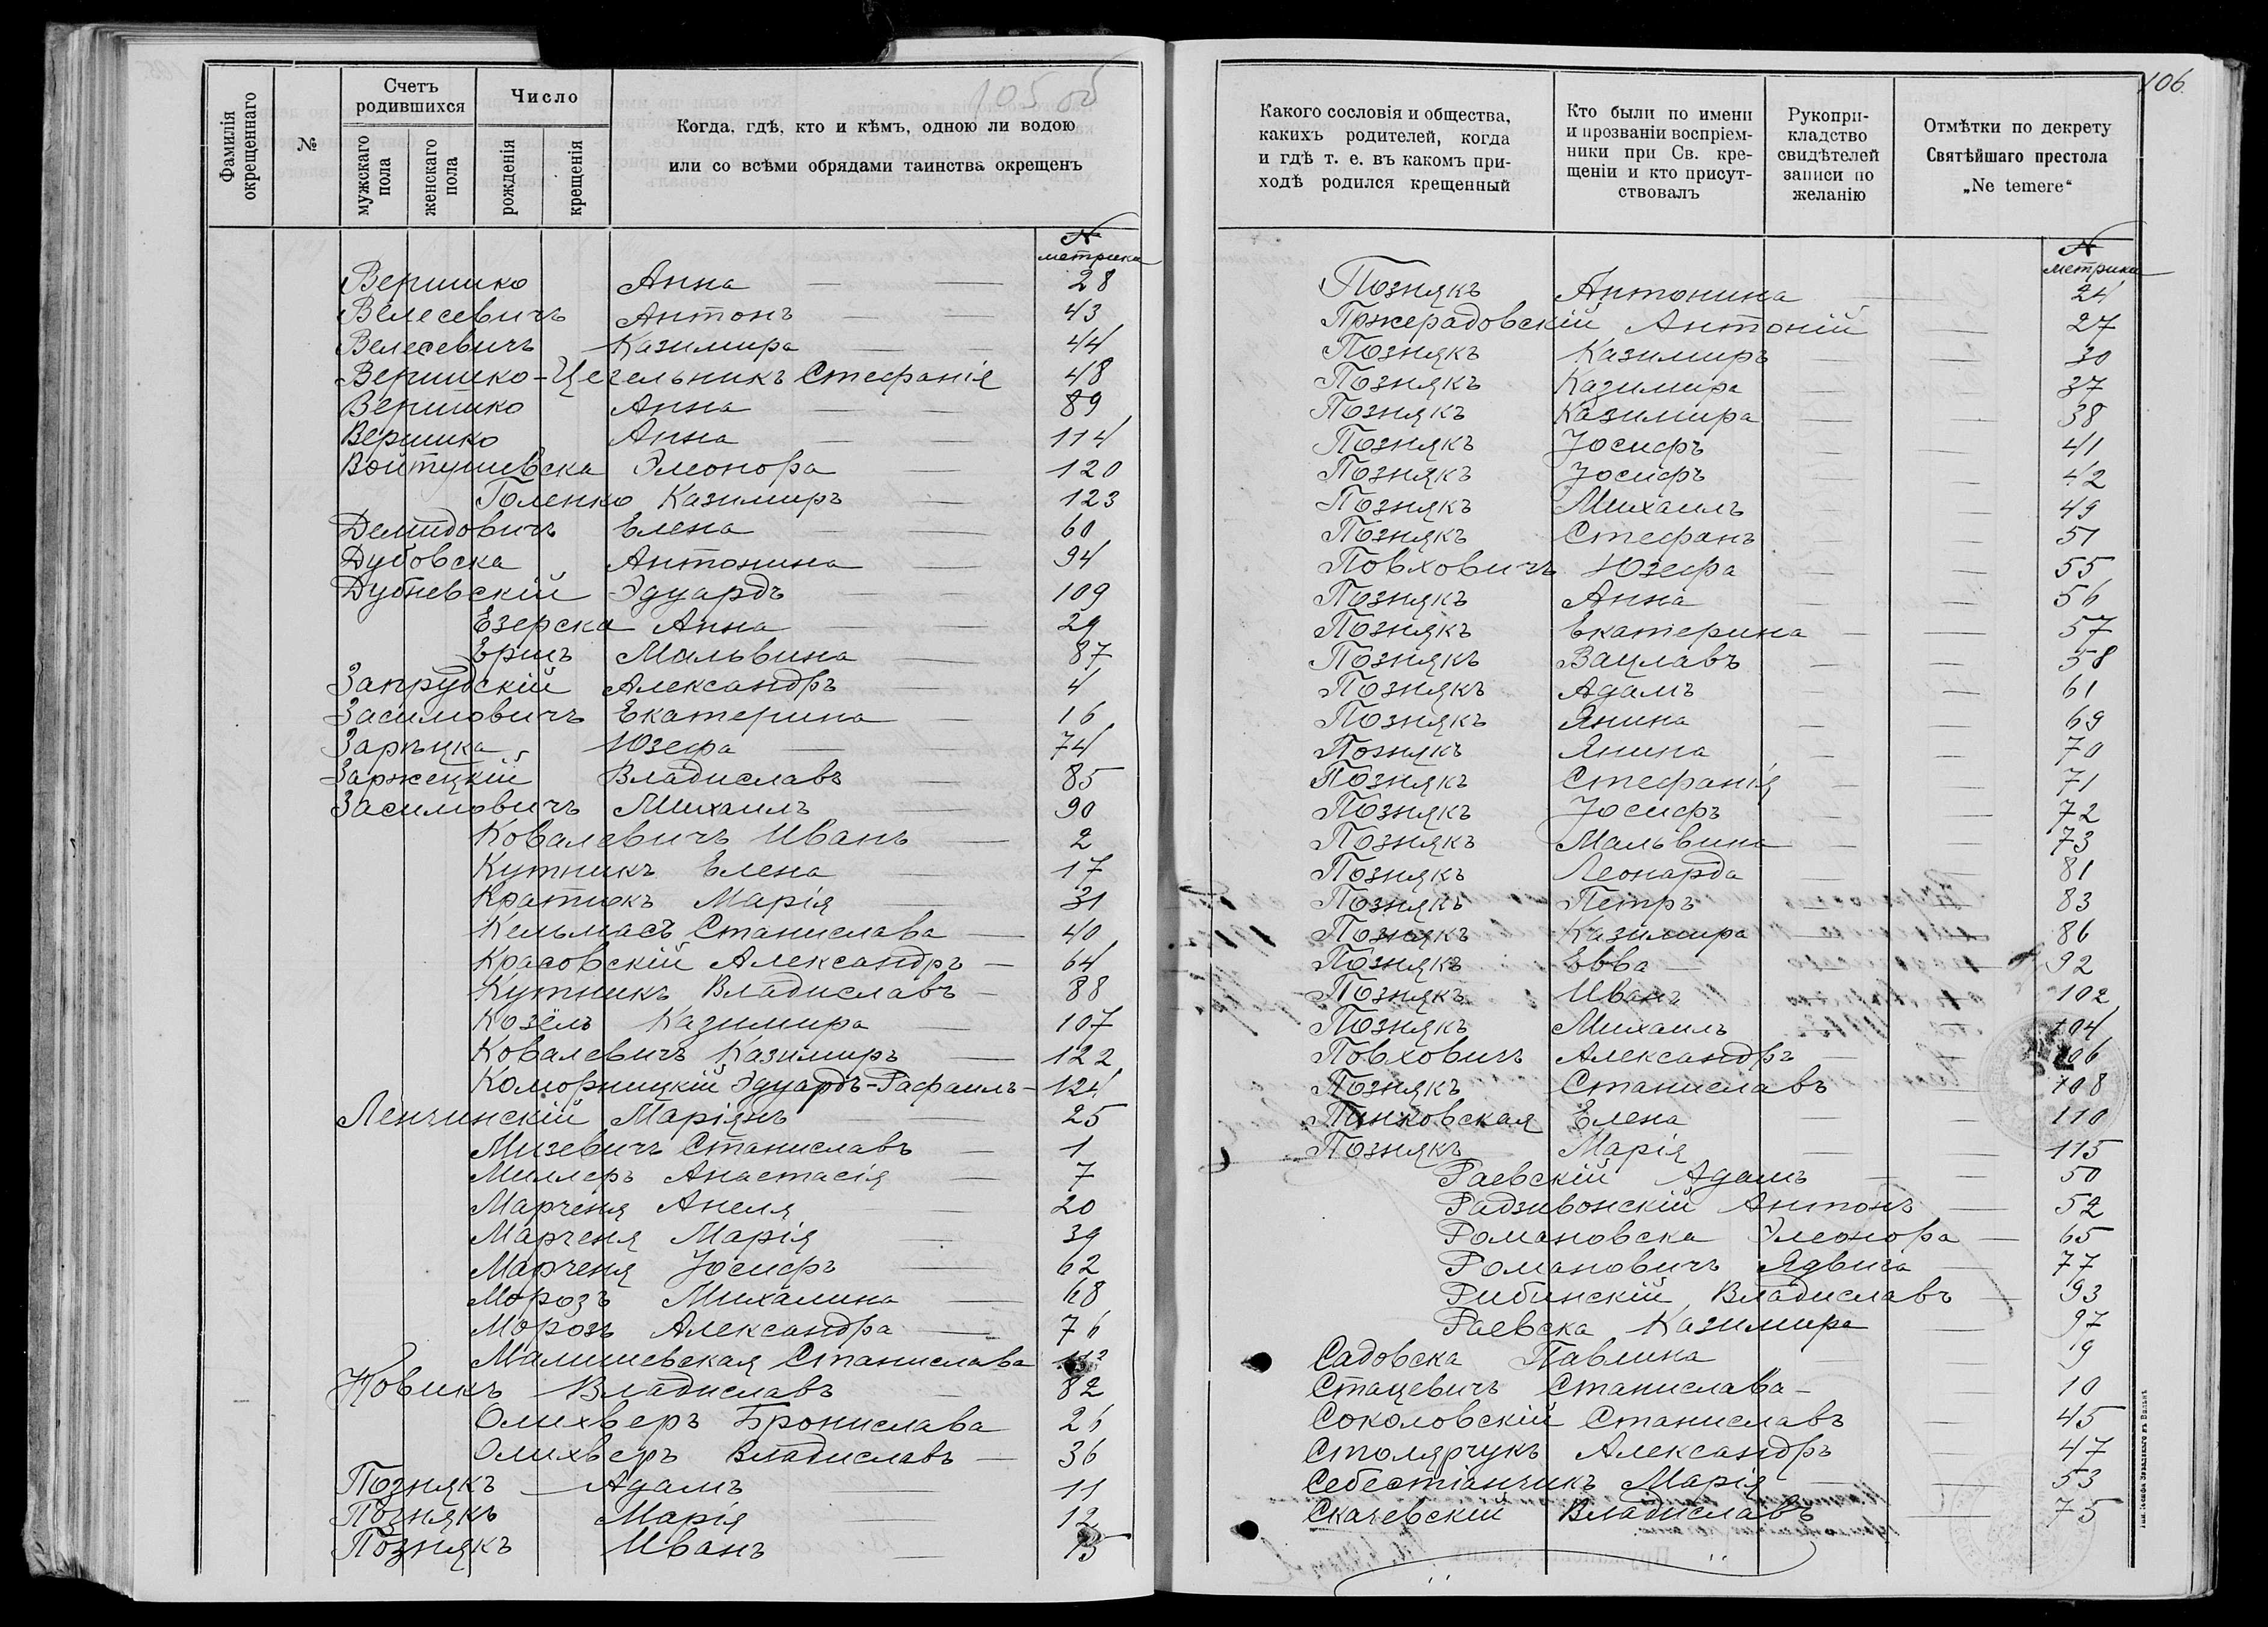 105 об
Фамилія окрещеннаго
№
Счетъ родившихся
мужскаго пола
женскаго пола
Число
рожденія
крещенія
Когда, гдѣ, кто и кѣмъ, одною ли водою
или со всѣми обрядами таинства окрещенъ
№ метрики
Вершко Анна — — 28
Велесевичъ Антонъ — — 43
Велесевичъ Казимира — — 44
Вершко-Цегельникъ Стефанія 48
Вершко Анна — — 89
Вершко Анна — — 114
Войтушевска Элеонора — 120
Голенко Казимиръ — 123
Демидовичъ Елена — — 60
Дубовска Антонина — 94
Дубневскій Эдуардъ — — 109
Езерска Анна — — 29
Ершъ Мальвина — 87
Запрудскій Александръ — 4
Засимовичъ Екатерина — 16
Зарѣцка Юзефа — — 74
Заржецкій Владиславъ — 85
Засимовичъ Михаилъ — 90
Ковалевичъ Иванъ — 2
Кутникъ Елена — 17
Кратюкъ Марія — 31
Кельмасъ Станислава — 40
Красовскій Александръ — 64
Кутникъ Владиславъ — 88
Козелъ Казимира — 107
Ковалевичъ Казимиръ — 122
Коморницкій Эдуардъ-Рафаилъ — 124
Ленчинскій Маріянъ — 25
Мизевичъ Станиславъ — 1
Миллеръ Анастасія — 7
Марченя Анеля — 20
Марченя Марія — 39
Марченя Іосифъ — 62
Морозъ Михалина — 68
Морозъ Александра — 76
Малишевская Станислава
Новикъ Владиславъ — 82
Олихверъ Бронислава 26
Олихверъ Владиславъ — 36
Познякъ Адамъ — 11
Познякъ Марія — 12
Познякъ Иванъ — 15
106
Какого сословія и общества,
какихъ родителей, когда
и гдѣ т. е. въ какомъ при-
ходѣ родился крещенный
Кто были по имени
и прозванiи воспріем-
ники при Св. кре-
щеніи и кто присут-
ствовалъ
Рукопри-
кладство
свидѣтелей
записи по
желанію
Отмѣтки по декрету
Святѣйшаго престола
„Ne temere“
№ метрики
Познякъ Антонина — 24
Пржерадовскій Антоній — 27
Познякъ Казимиръ — 30
Познякъ Казимира — — 37
Познякъ Казимира — — 38
Познякъ Іосифъ — — 41
Познякъ Іосифъ — — 42
Познякъ Михаилъ — — 49
Познякъ Стефанъ — — 51
Повховичъ Юзефа — — 55
Познякъ Анна — — 56
Познякъ Екатерина — — 57
Познякъ Вацлавъ — — 58
Познякъ Адамъ — 61
Познякъ Янина — — 69
Познякъ Янина — — 70
Познякъ Стефанія — — 71
Познякъ Іосифъ — — 72
Познякъ Мальвина — — 73
Познякъ Леонарда — — 81
Познякъ Петръ — — 83
Познякъ Казимира — — 86
Познякъ Евва — 92
Познякъ Иванъ — 102
Познякъ Михаилъ — 104
Повховичъ Александръ — 106
Познякъ Станиславъ — 108
Пинковская Елена — — 110
Познякъ Марія — — 115
Раевскій Адамъ — — 50
Радзивонскій Антонъ — 52
Романовска Элеонора — 65
Романовичъ Ядвига — 77
Рибинскій Владиславъ — 93
Раевска Казимира — 97
Садовска Павлина — 9
Стацевичъ Станислава — 10
Соколовскій Станиславъ — 45
Столярчукъ Александръ — 47
Себестіанчикъ Марія — — 53
Скачевскій Владиславъ — 75